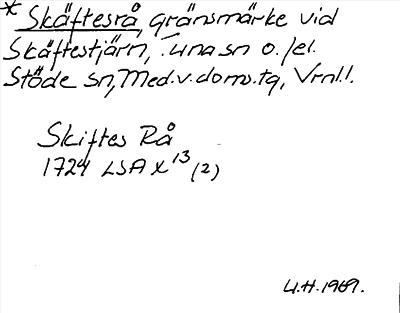 * Skäftesrå, gränsmärke vid
Skäftestjärn, Tuna sn o./el.
Stöde sn, Med.v.doms.tg, Vrnl.l.
Skiftes Rå
1724 LSA X 13 (2)
U.H. 1969.